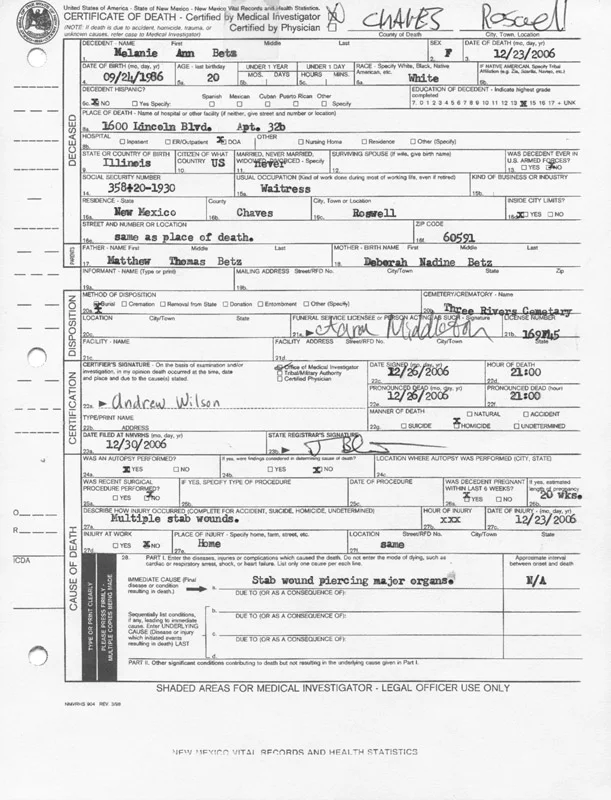 United States of America - State of New Mexico - New Mexico Vital Records and Health Statistics.
CERTIFICATE OF DEATH - Certified by Medical Investigator X
(NOTE: If death is due to accident, homicide, trauma, or Certified by Physician
unknown causes, refer case to Medical Investigator)
CHAVES Roswell
County of Death City, Town, Location
DECEDENT - NAME First Middle Last SEX DATE OF DEATH (mo, day, yr)
1. Melanie Ann Betz 2. F 3. 12/23/2006
DATE OF BIRTH (mo, day, yr) AGE - last birthday UNDER 1 YEAR UNDER 1 DAY RACE - Specify White, Black, Native American, etc. IF NATIVE AMERICAN, Specify Tribal Affiliation (e.g. Zia, Jicarilla, Navajo, etc.)
MOS. DAYS HOURS MINS.
4. 09/24/1986 5a. 20 5b. 5c. White
DECEDENT HISPANIC? Spanish Mexican Cuban Puerto Rican Other EDUCATION OF DECEDENT - Indicate highest grade completed
X NO Yes Specify: Specify 7. 0 1 2 3 4 5 6 7 8 9 10 11 12 13 X 15 16 17 + UNK
PLACE OF DEATH - Name of hospital or other facility (if neither, give street and number or location)
8a. 1600 Lincoln Blvd. Apt. 32b
HOSPITAL OTHER
8b. Inpatient ER/Outpatient X DOA Nursing Home Residence Other (Specify)
STATE OR COUNTRY OF BIRTH CITIZEN OF WHAT COUNTRY MARRIED, NEVER MARRIED, WIDOWED, DIVORCED - Specify SURVIVING SPOUSE (If wife, give birth name) WAS DECEDENT EVER IN U.S. ARMED FORCES?
9. Illinois 10. US 11. never 12. 13. YES X NO
SOCIAL SECURITY NUMBER USUAL OCCUPATION (Kind of work done during most of working life, even if retired) KIND OF BUSINESS OR INDUSTRY
14. 358-20-1930 15a. Waitress 15b.
RESIDENCE - State County City, Town or Location INSIDE CITY LIMITS?
16a. New Mexico 16b. Chaves 16c. Roswell X YES NO
STREET AND NUMBER OR LOCATION ZIP CODE
16e. same as place of death. 16f. 60591
FATHER - NAME First Middle Last MOTHER - BIRTH NAME First Middle Last
17. Matthew Thomas Betz 18. Deborah Nadine Betz
INFORMANT - NAME (Type or print) MAILING ADDRESS Street/RFD No. City/Town State Zip
19a. 19b.
METHOD OF DISPOSITION CEMETERY/CREMATORY - Name
20a. X Burial Cremation Removal from State Donation Entombment Other (Specify) 20b. Three Rivers Cemetary
LOCATION City/Town State FUNERAL SERVICE LICENSEE or PERSON ACTING AS SUCH - Signature LICENSE NUMBER
20c. 21a. Middleton 21b. 169745
FACILITY - NAME FACILITY ADDRESS Street/RFD No. City/Town State
21c. 21d.
CERTIFIER'S SIGNATURE - On the basis of examination and/or investigation, in my opinion death occurred at the time, date and place and due to the cause(s) stated.
Office of Medical Investigator
Tribal/Military Authority
Certified Physician
DATE SIGNED (mo, day, yr) HOUR OF DEATH
22c. 12/26/2006 21:00
PRONOUNCED DEAD (mo, day, yr) PRONOUNCED DEAD (hour)
22a. Andrew Wilson 22e. 12/26/2006 22f. 21:00
TYPE/PRINT NAME MANNER OF DEATH NATURAL ACCIDENT
22b. ADDRESS 22g. SUICIDE X HOMICIDE UNDETERMINED
DATE FILED AT NMVRHS (mo, day, yr) STATE REGISTRAR'S SIGNATURE
23a. 12/30/2006 23b.
WAS AN AUTOPSY PERFORMED? If yes, were findings considered in determining cause of death? LOCATION WHERE AUTOPSY WAS PERFORMED (CITY, STATE)
24a. X YES NO 24b. X YES NO 24c.
WAS RECENT SURGICAL PROCEDURE PERFORMED? IF YES, SPECIFY TYPE OF PROCEDURE DATE OF PROCEDURE WAS DECEDENT PREGNANT WITHIN LAST 6 WEEKS? If yes, estimated length of pregnancy
25a. YES X NO 25b. 25c. 26a. X YES NO 26b. 20 Wks.
DESCRIBE HOW INJURY OCCURRED (COMPLETE FOR ACCIDENT, SUICIDE, HOMICIDE, UNDETERMINED) HOUR OF INJURY DATE OF INJURY - (mo, day, yr)
27a. Multiple stab wounds. 27b. xxx 27c. 12/23/2006
INJURY AT WORK PLACE OF INJURY - Specify home, farm, street, etc. LOCATION Street/RFD No. City/Town State
27d. YES X NO Home same
28. PART I. Enter the diseases, injuries or complications which caused the death. Do not enter the mode of dying, such as cardiac or respiratory arrest, shock, or heart failure. List only one cause per each line. Approximate interval between onset and death
IMMEDIATE CAUSE (Final disease or condition resulting in death.) a. Stab wound piercing major organs. N/A
DUE TO (OR AS A CONSEQUENCE OF):
Sequentially list conditions, if any, leading to immediate cause. Enter UNDERLYING CAUSE (Disease or injury which initiated events resulting in death) LAST
b.
DUE TO (OR AS A CONSEQUENCE OF):
c.
DUE TO (OR AS A CONSEQUENCE OF):
d.
PART II. Other significant conditions contributing to death but not resulting in the underlying cause given in Part I.
DECEASED
PARENTS
DISPOSITION
CERTIFICATION
CAUSE OF DEATH
TYPE OR PRINT CLEARLY
PLEASE PRESS FIRMLY - MULTIPLE COPIES BEING MADE
O
R
ICDA
SHADED AREAS FOR MEDICAL INVESTIGATOR - LEGAL OFFICER USE ONLY
NMVRHS 904 REV. 3/98
NEW MEXICO VITAL RECORDS AND HEALTH STATISTICS